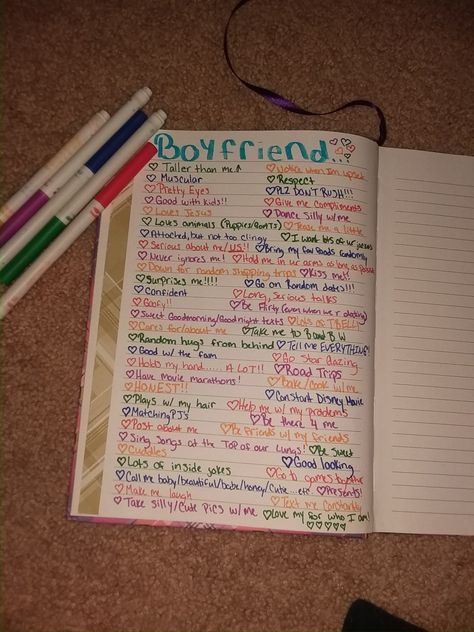 Boyfriend...
♡ Taller than me↑ ♡Notice when Im upset
♡ Muscular ♡Respect
♡ Pretty Eyes ♡PLZ DON'T RUSH!!!
♡ Good with kids!! ♡ Give me compliments
♡ Loves Jesus ♡ Dance Silly w/me
♡ Loves animals (Puppies/ ♡Tease me a little
♡Attached, but not too clingy ♡I want lots of ur
♡Serious about me/US!! ♡Bring my fav foods randomly
♡Never ignores me! ♡Hold me in ur arms as long as possible
♡Down for random shopping trips ♡Kiss me!!
♡Surprises me!!!! ♡Go on Random dates!!!
♡Confident ♡Long, serious talks
♡Goofy!! ♡Be Flirty (even when we r dating)
♡Sweet Goodmorning/Goodnight texts ♡Lots of
♡Cares for/about me ♡Take me to B and B W
♡Random hugs from behind ♡Tell me EVERYTHING!
♡Good w/ the fam ♡Go Star Gazing
♡Holds my hand...... A LOT!! ♡Road Trips
♡Have movie marathons! ♡Bake/Cook w/me
♡HONEST!! ♡Constant Disney Movie
♡Plays w/ my hair ♡Help me w/ my problems
♡Matching PJs ♡Be there 4 me
♡Post about me ♡Be friends w/ my friends
♡Sing Songs at the Top of our Lungs! ♡Be Sweet
♡Cuddles ♡Good looking
♡Lots of inside jokes ♡Go to games together
♡Call me baby/beautiful/babe/honey/cutie...etc. ♡Presents!
♡Make me laugh ♡Text me Constantly
♡Take Silly/Cute Pics w/ me ♡Love my for who I am!
♡♡♡♡♡